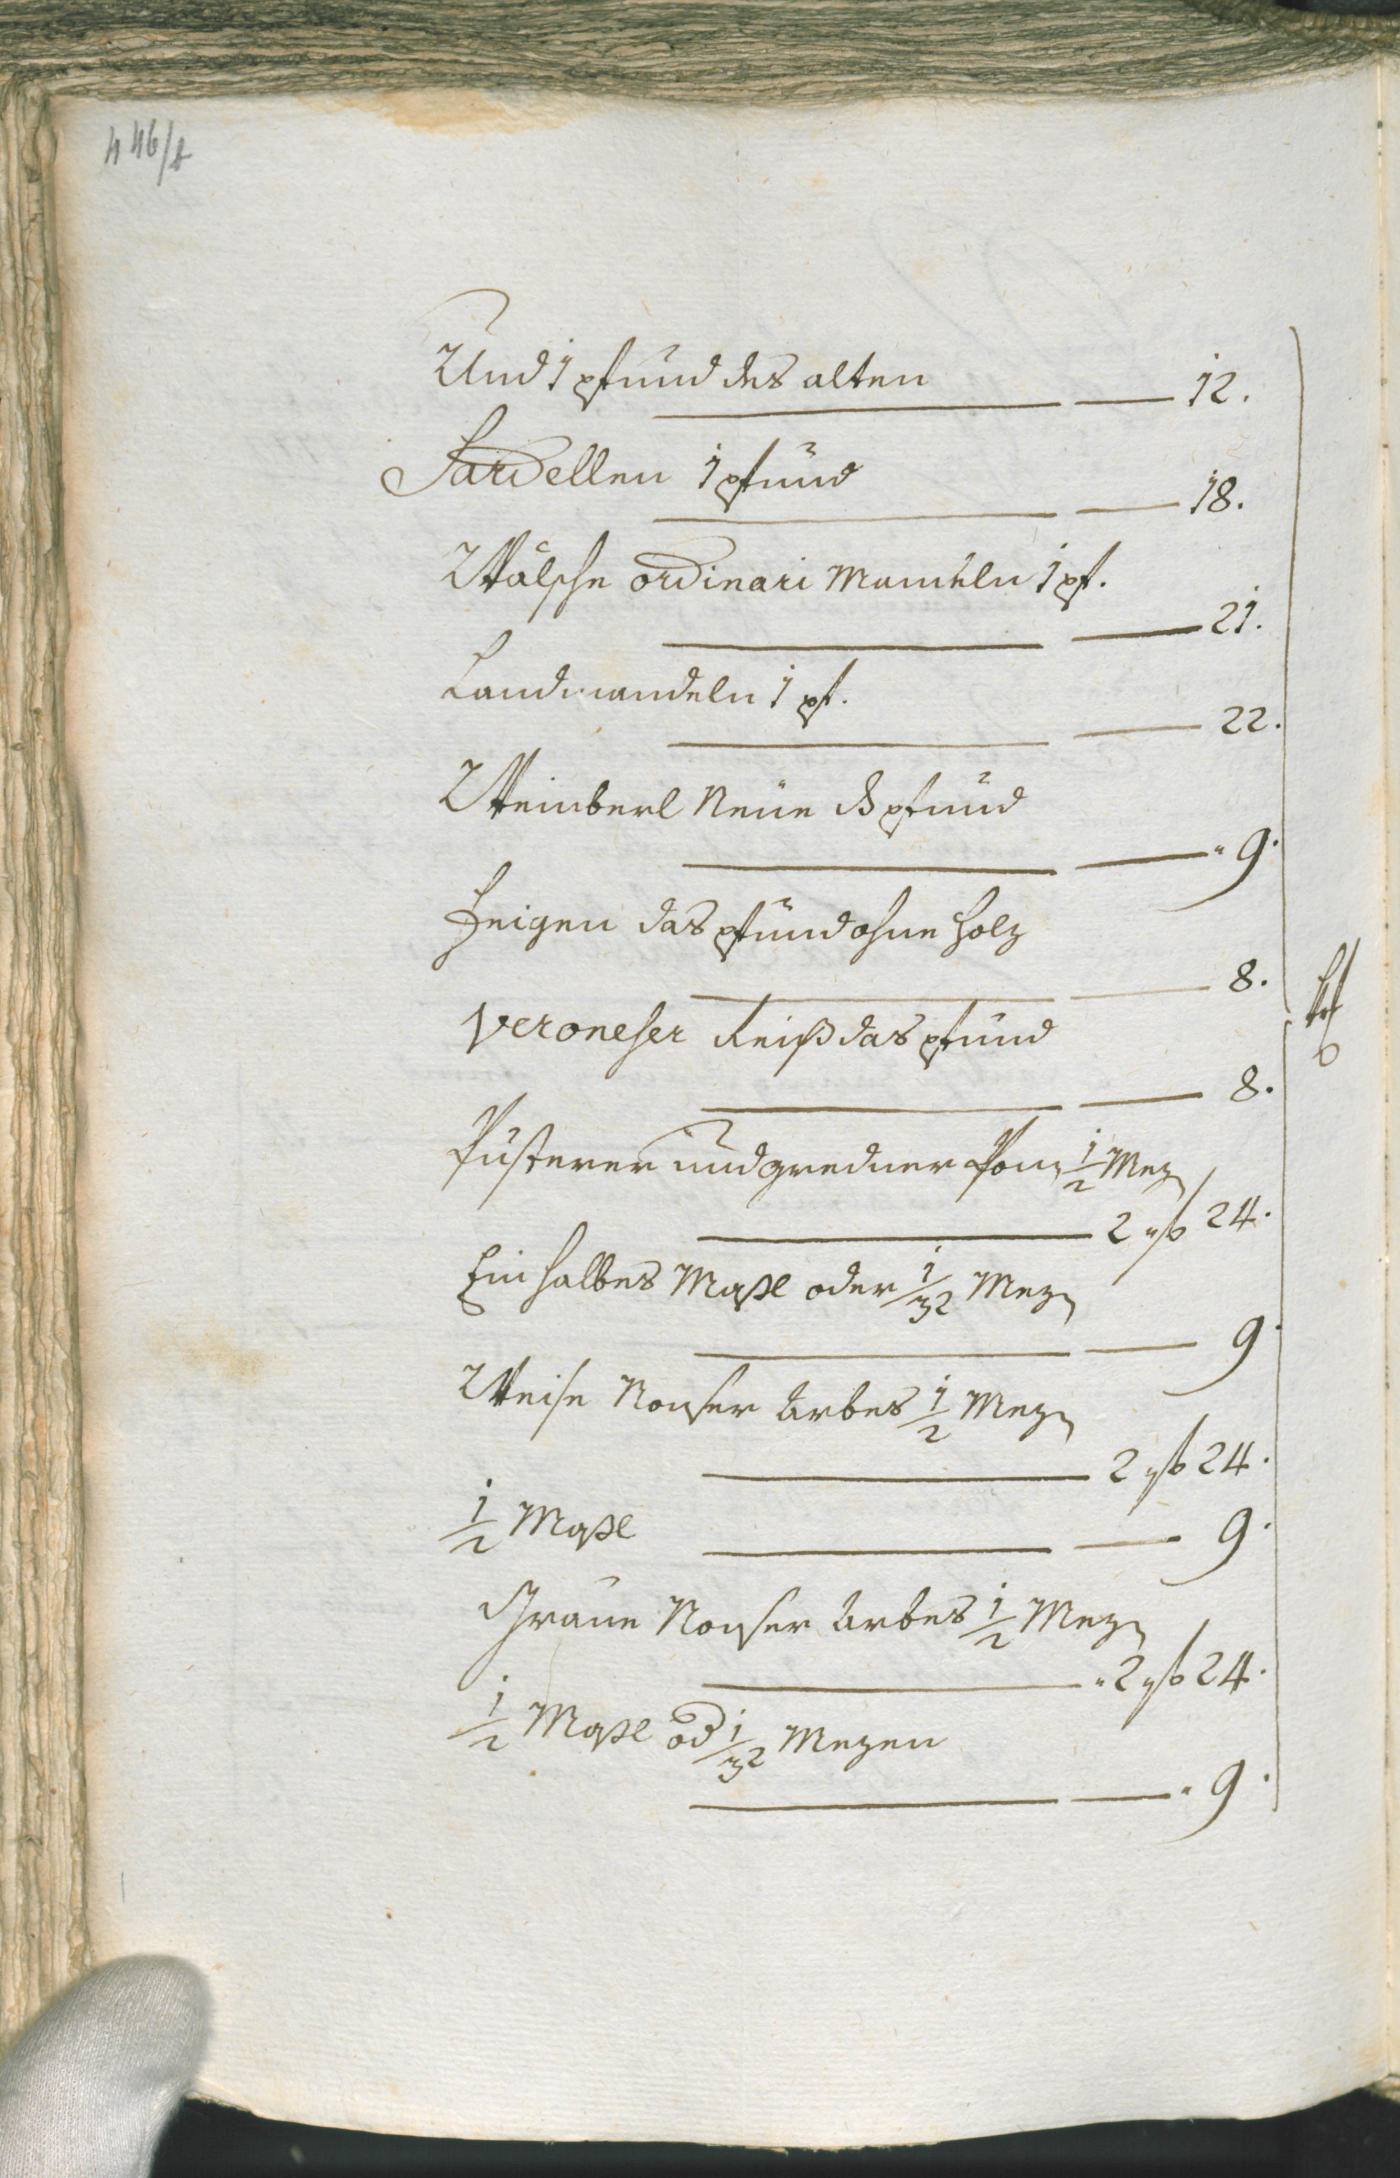 Und 1 pfund des alten
12.
Sardellen 1 pfund
18.
Wälsche ordinari Mandeln 1 pf.
21.
Landmandeln 1 pf.
22.
Weinberl Neue d pfund
9.
Feigen das pfund ohne Holz
8.
Veroneser Reiß das pfund
8.
Pusterer und gredner Pon 1/2 Mez
2 fl 24.
Ein halbes Maßl oder 1/32 Mez
9.
Weise Nonser Arbes 1/2 Mez
2 fl 24.
1/2 Maßl
9.
Graue Nonser Arbes 1/2 Mez
2 fl 24.
1/2 Maßl od 1/32 Mezen
9.